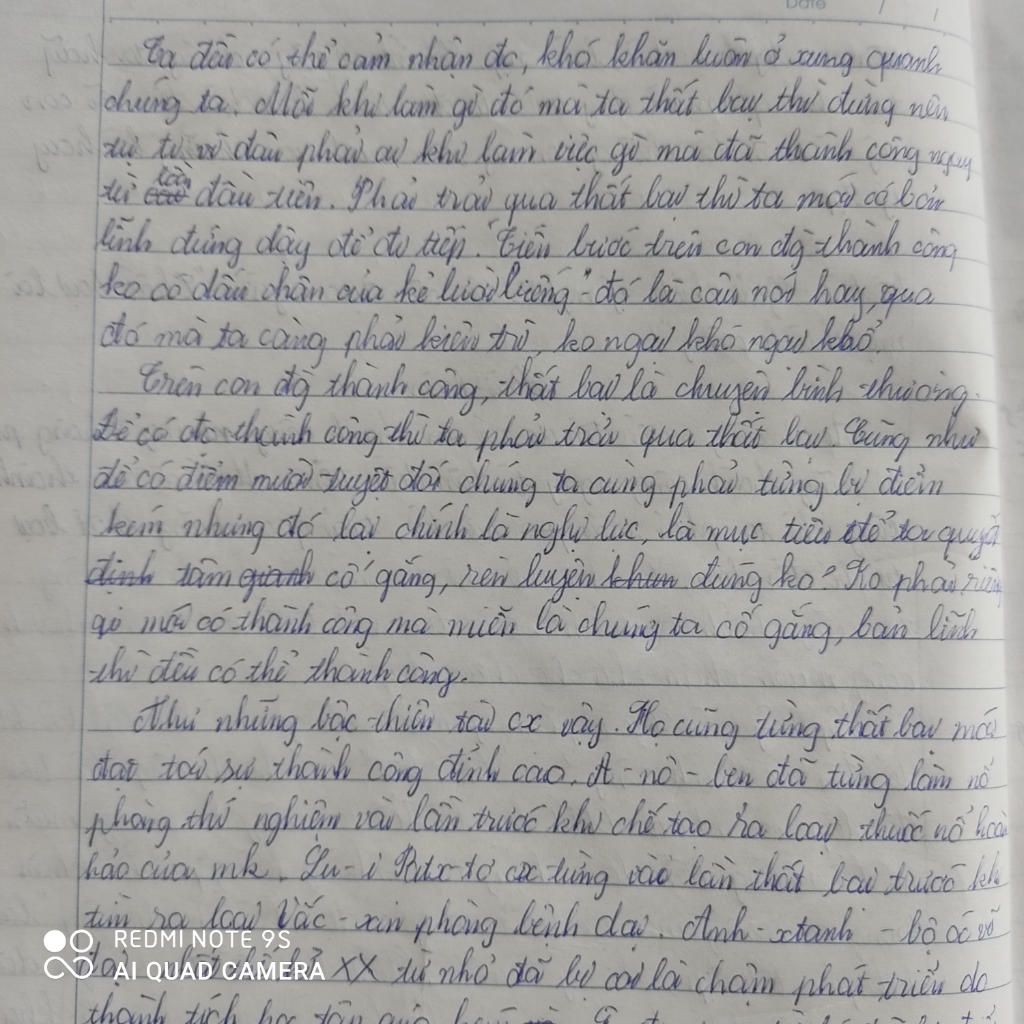 Date / /
Ta đều có thể cảm nhận đc, khó khăn luôn ở xung quanh
chúng ta. Mỗi khi làm gì đó mà ta thất bại thì đừng nên
tự ti vì đâu phải ai khi làm việc gì mà đã thành công ngay
từ lần đầu tiên. Phải trải qua thất bại thì ta mới có bản
lĩnh đứng dậy để đi tiếp. "Tiến bước trên con đg thành công
ko có dấu chân của kẻ lười biếng" đó là câu nói hay, qua
đó mà ta càng phải kiên trì, ko ngại khó ngại khổ.
Trên con đg thành công, thất bại là chuyện bình thường.
Để có đc thành công thì ta phải trải qua thất bại. Cũng như
để có điểm mười tuyệt đối chúng ta cũng phải từng bị điểm
kém nhưng đó lại chính là nghị lực, là mục tiêu để ta quyết
định tâm cố gắng, rèn luyện đúng ko? Ko phải riêng
mới có thành công mà miễn là chúng ta cố gắng, bản lĩnh
thì đều có thể thành công.
Như những bậc thiên tài cx vậy. Họ cũng từng thất bại mới
đạt tới sự thành công đỉnh cao. A-nô-ben đã từng làm nổ
phòng thí nghiệm vài lần trước khi chế tạo ra loại thuốc nổ hoàn
hảo của mk. Lu-i Patx-tơ cx từng vài lần thất bại trước khi
tìm ra loại vắc-xin phòng bệnh dại. Anh-xtanh - bộ óc vĩ
đại nhất thế kỉ XX từ nhỏ đã bị coi là chậm phát triển do
thành tích học tập
REDMI NOTE 9S
AI QUAD CAMERA